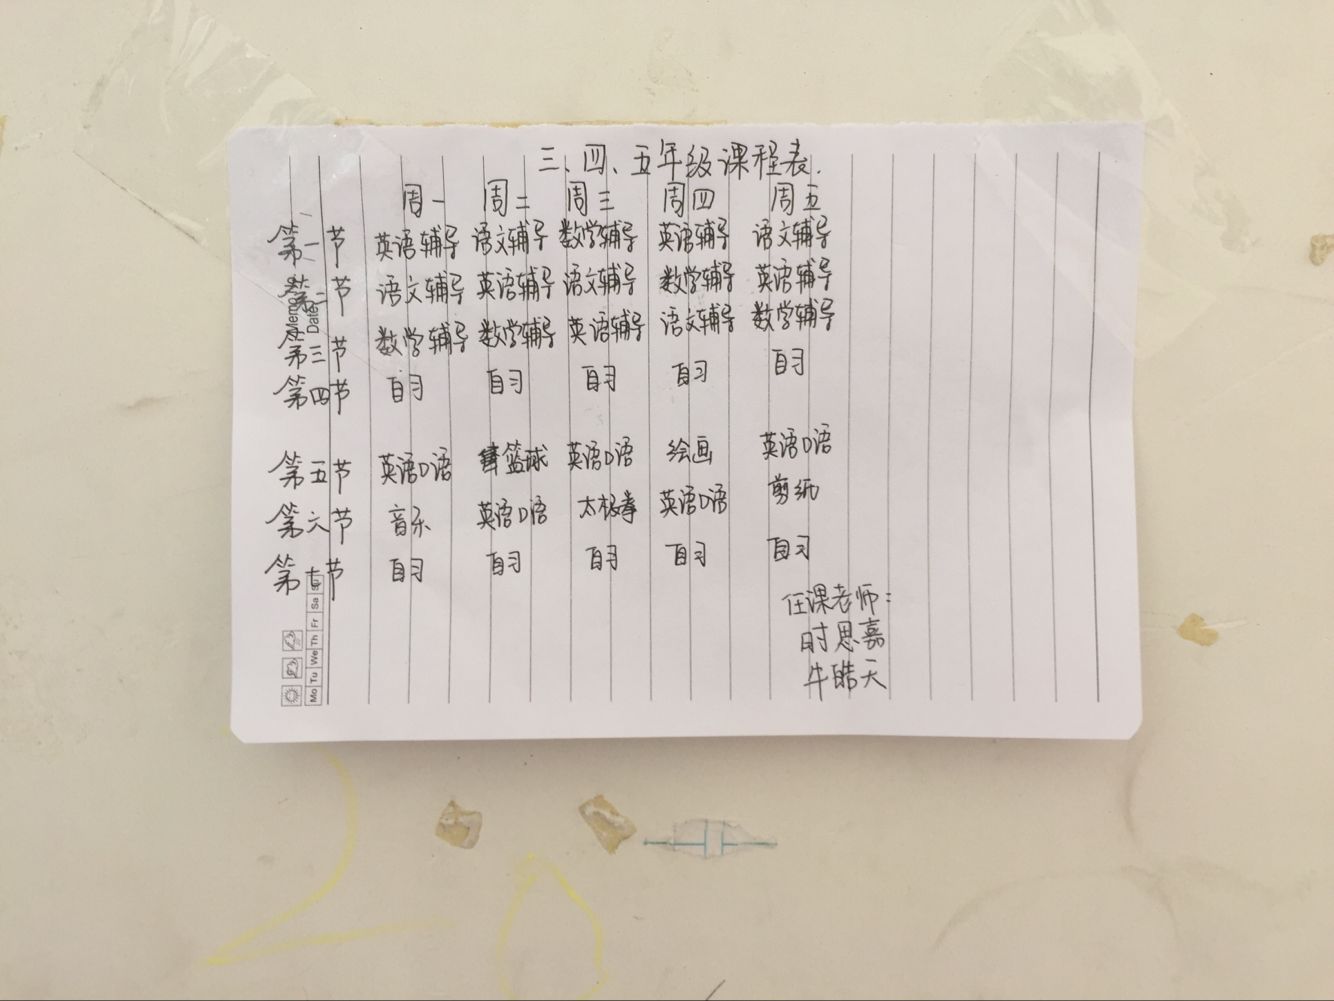 三、四、五年级课程表.
周一 周二 周三 周四 周五
第一节 英语辅导 语文辅导 数学辅导 英语辅导 语文辅导
第二节 语文辅导 英语辅导 语文辅导 数学辅导 英语辅导
第三节 数学辅导 数学辅导 英语辅导 语文辅导 数学辅导
第四节 自习 自习 自习 自习 自习
第五节 英语口语 篮球 英语口语 绘画 英语口语
第六节 音乐 英语口语 太极拳 英语口语 剪纸
第七节 自习 自习 自习 自习 自习
任课老师:
时思嘉
牛皓天
Date
Mo Tu We Th Fr Sa